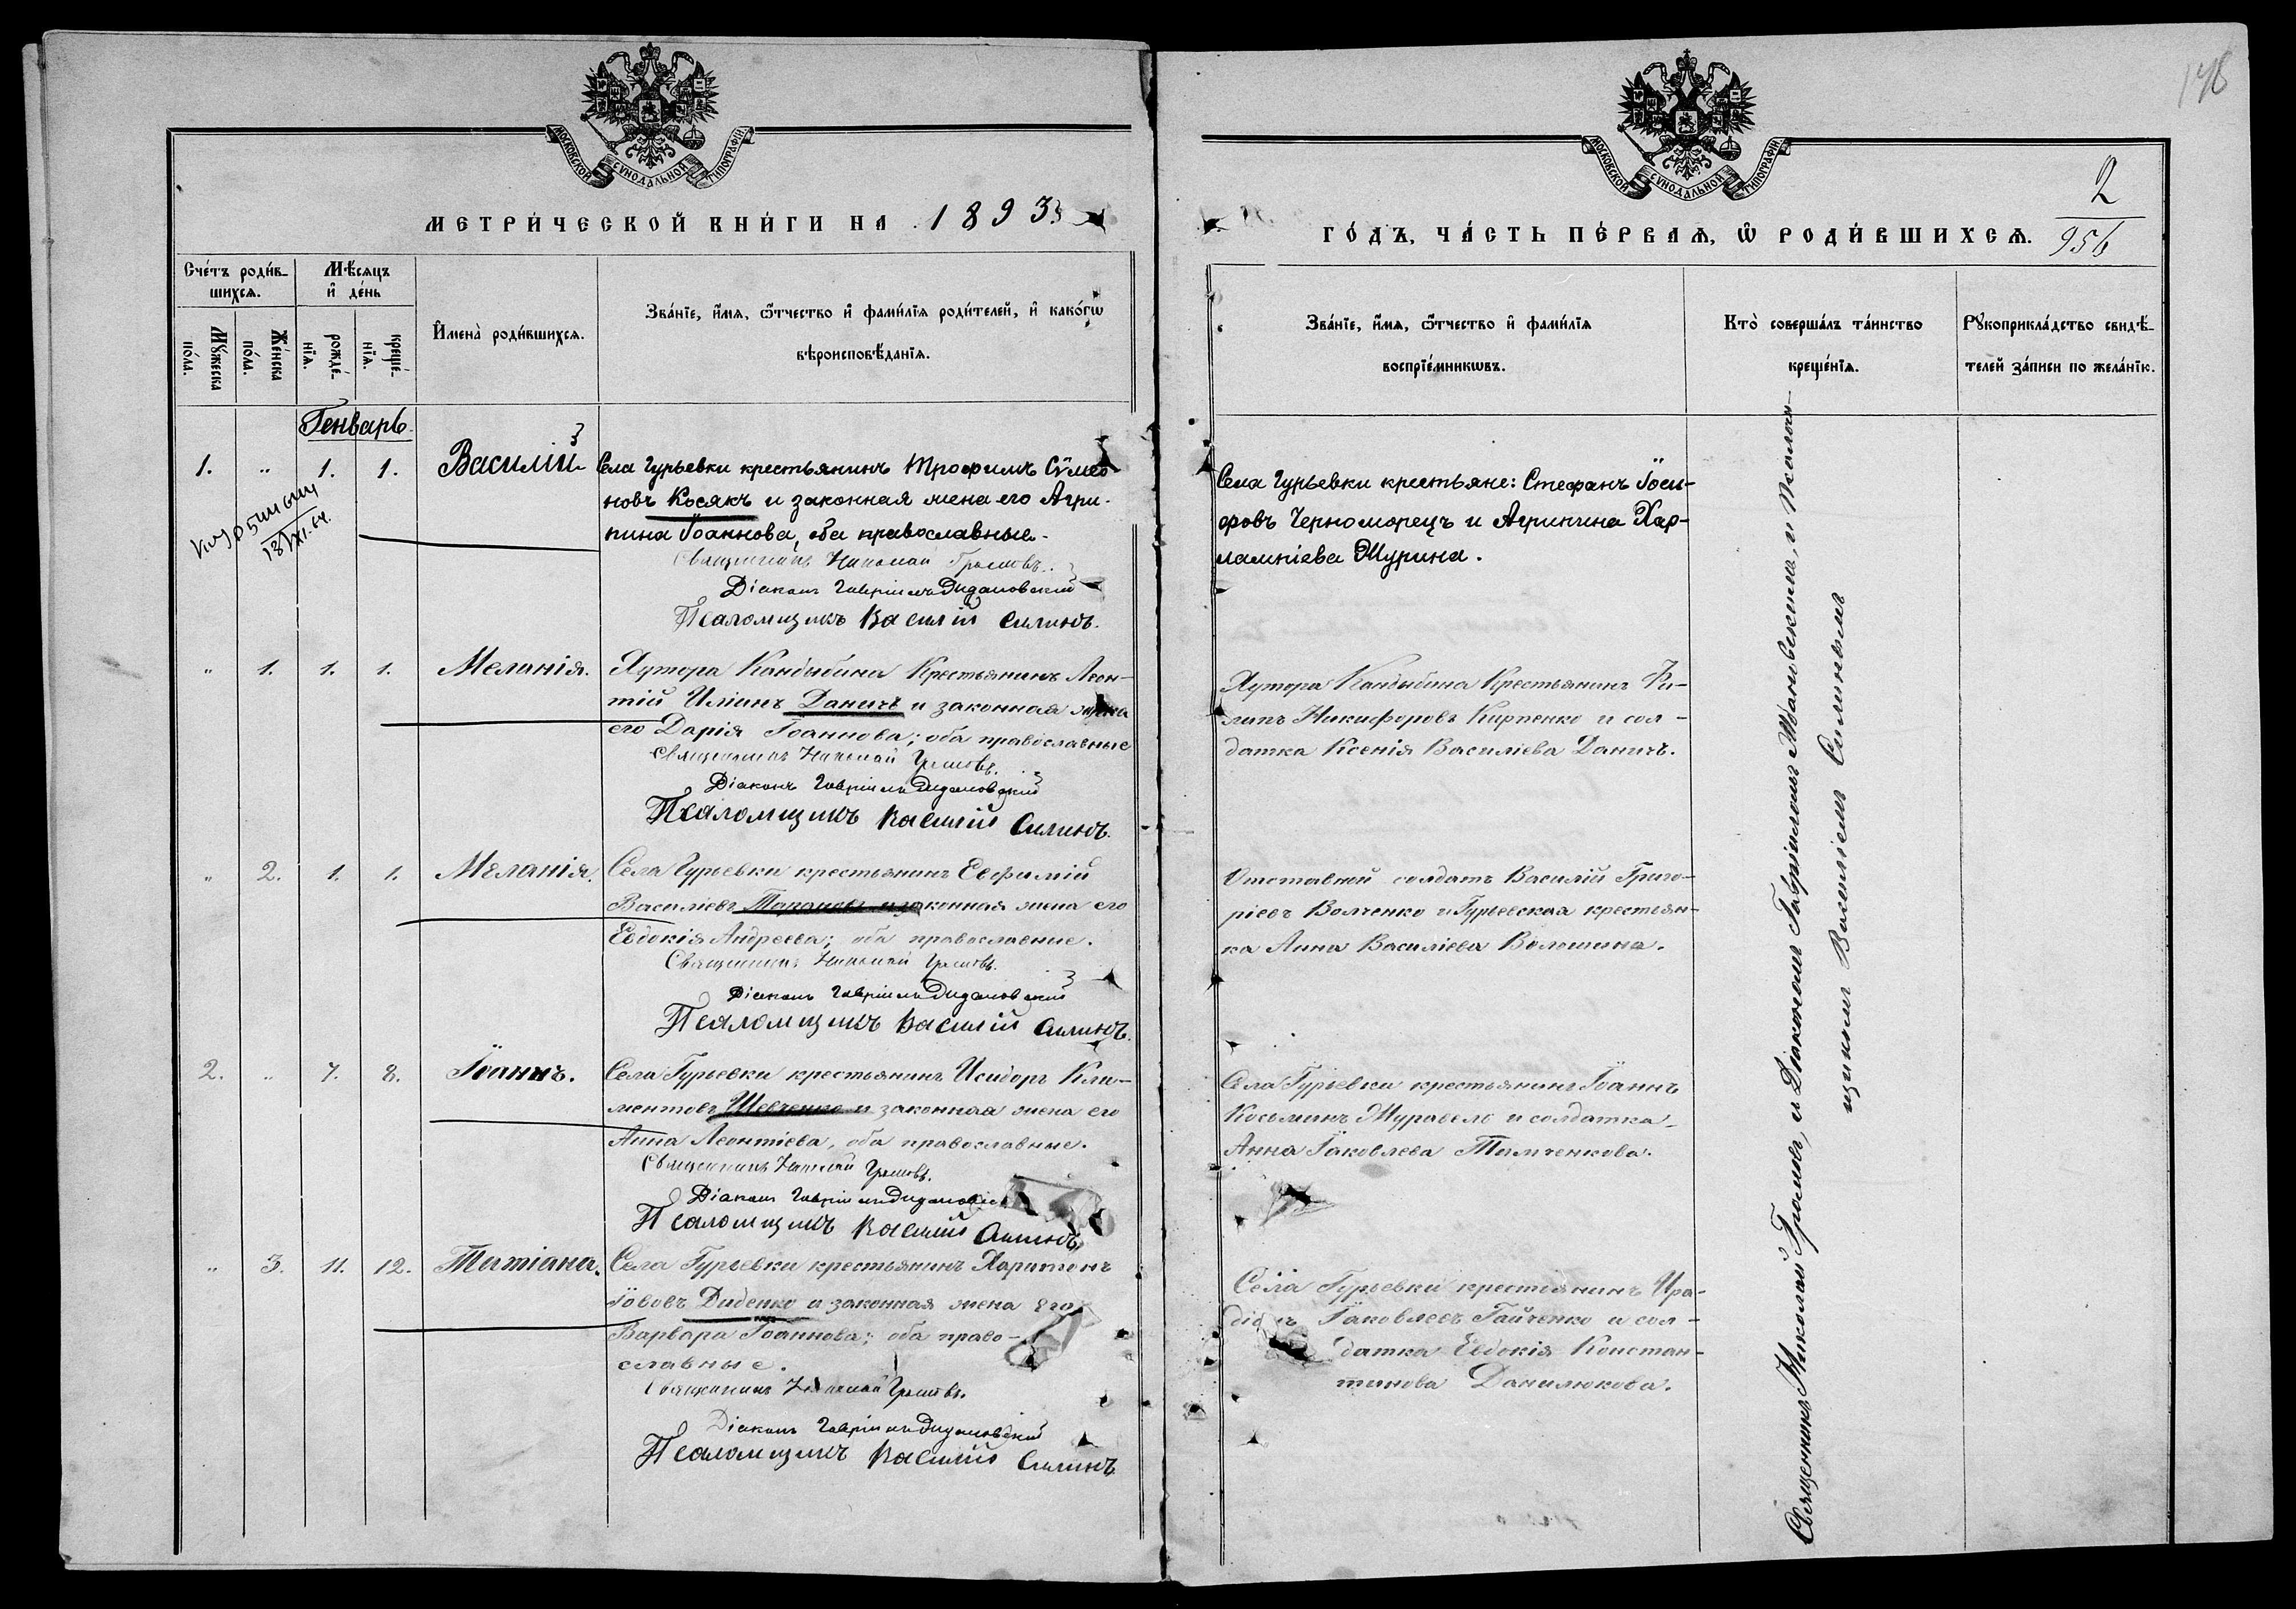 МОСКОВСКОЙ СѴНОДАЛЬНОЙ ТИПОГРАФІИ
МЕТРИ́ЧЕСКОЙ КНИ́ГИ НА 1893
Сче́тъ роди́в-
шихсѧ.
Мꙋ́жеска
по́ла.
Же́нска
по́ла.
Мѣ́сѧцъ
и҆ де́нь
рожде́-
нїѧ.
креще́-
нїѧ.
И҆мена̀ роди́вшихсѧ.
Зва́нїе, и҆́мѧ, ѻ҆́тчество и҆ фами́лїѧ роди́телей, и҆ како́гѡ
вѣроисповѣ́данїѧ.
Генварь
1. " 1. 1. Василій
Села Гурьевки крестьянинъ Трофимъ Сѵмео-
новъ Косякъ и законная жена его Агри-
пина Іоаннова, оба православные.
Священникъ Николай Громовъ.
Діаконъ Гавріилъ
Псаломщикъ Василій Силинъ.
18/XI.64.
" 1. 1. 1. Меланія.
Хутора Кандыбина Крестьянинъ Леон-
тій Иліинъ Даничъ и законная жена
его Дарія Іоаннова; оба православные
Священникъ Николай Громовъ.
Діаконъ Гавріилъ
Псаломщикъ Василій Силинъ.
" 2. 1. 1. Меланія.
Села Гурьевки крестьянинъ Евфимій
Василіевъ и законная жена его
Евдокія Андреева; оба православные.
Священникъ Николай Громовъ.
Діаконъ Гавріилъ
Псаломщикъ Василій Силинъ.
2. " 7. 8. Іоаннъ.
Села Гурьевки крестьянинъ Исидоръ Кли-
ментовъ Шевченко и законная жена его
Анна Леонтіева, оба православные.
Священникъ Николай Громовъ.
Діаконъ Гавріилъ
Псаломщикъ Василій Силинъ.
" 3. 11. 12. Татіана.
Села Гурьевки крестьянинъ Харитонъ
Іововъ Диденко и законная жена его
Варвара Іоаннова; оба право-
славные.
Священникъ Николай Громовъ.
Діаконъ Гавріилъ
Псаломщикъ Василій Силинъ
МОСКОВСКОЙ СѴНОДАЛЬНОЙ ТИПОГРАФІИ
2
956
ГО́ДЪ, ЧА́СТЬ ПЕ́РВАѦ, Ѡ҆ РОДИ́ВШИХСѦ.
Зва́нїе, и҆́мѧ, ѻ҆́тчество и҆ фами́лїѧ
воспрїе́мникѡвъ.
Кто̀ соверша́лъ та́инство
креще́нїѧ.
Рꙋкоприкла́дство свидѣ́-
телей за́писи по жела́нїю.
Села Гурьевки крестьяне: Стефанъ Іоси-
фовъ Черноморецъ и Агрипина Хар-
лампіева Шурина.
Хутора Кандыбина Крестьянинъ Фи-
липъ Никифоровъ Кирпенко и сол-
датка Ксенія Василіева Даничъ.
Отставной солдатъ Василій Григо-
ріевъ Волченко и Гурьевская крестьян-
ка Анна Василіева Волошина.
Села Гурьевки крестьянинъ Іоаннъ
Косьминъ Журавель и солдатка
Анна Іаковлева Тимченкова.
Села Гурьевки крестьянинъ Иро-
діонъ Іаковлевъ Гайченко и сол-
датка Евдокія Констан-
тинова Данилюкова.
Священникъ Николай Громовъ, съ Діакономъ Гавріиломъ и Псалом-
щикомъ Василіемъ Силинымъ